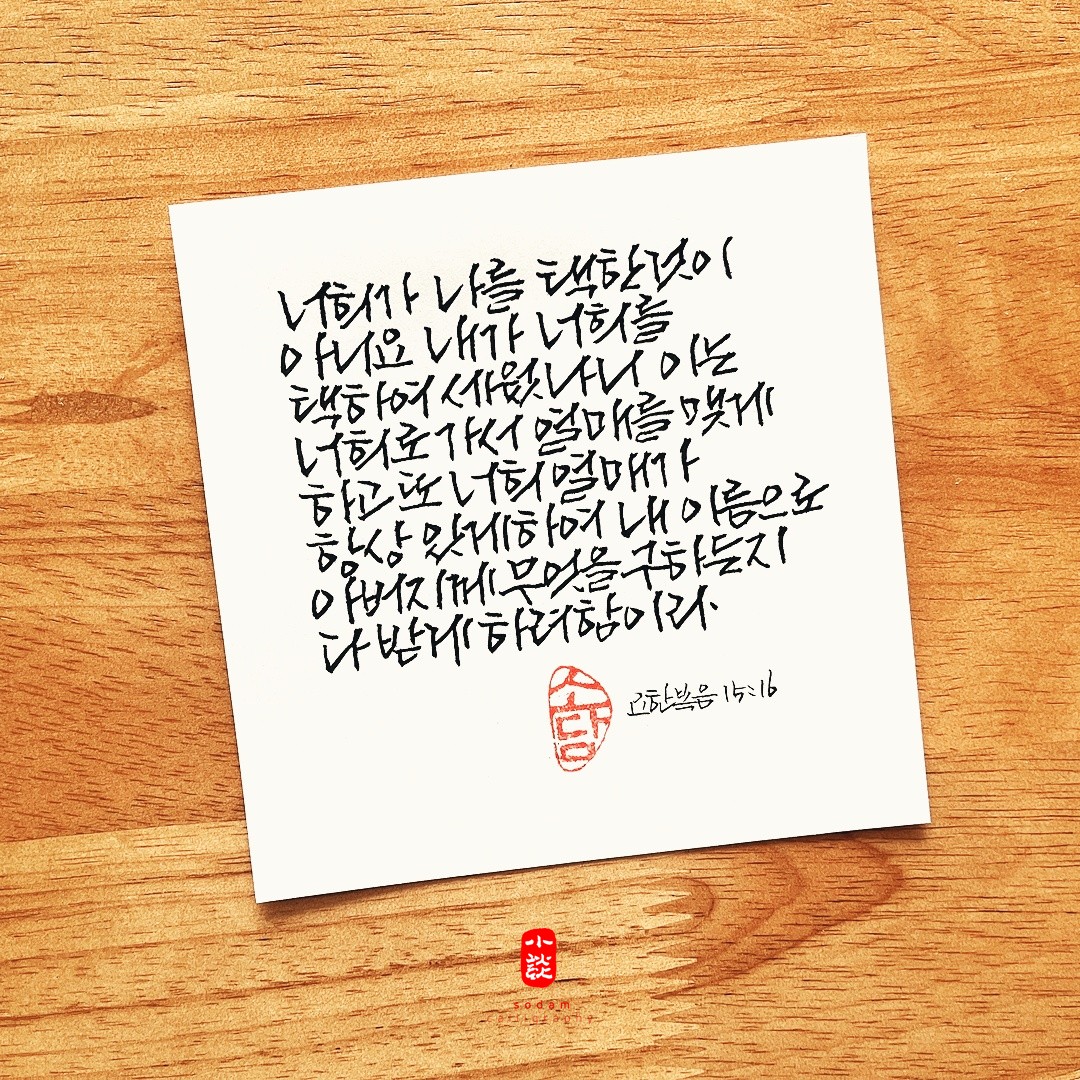 너희가 나를 택한것이
아니요 내가 너희를
택하여 세웠나니 이는
너희로 가서 열매를 맺게
하고 또 너희 열매가
항상 있게하여 내 이름으로
아버지께 무엇을 구하든지
다 받게 하려함이라.
소담
요한복음 15:16
小談
sodam
calligraphy